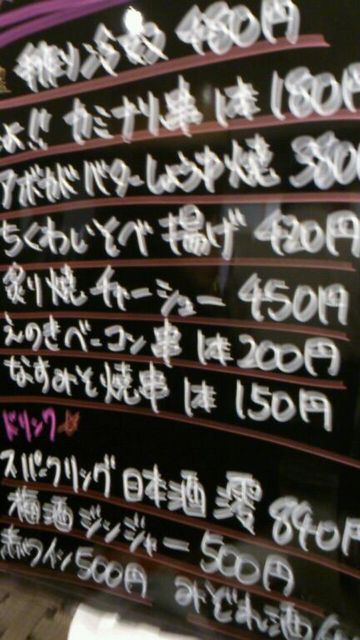 冷奴 480円
よ!! カミナリ串 1本 180円
アボカドバターしょうゆ焼 380
ちくわいそべ揚げ 420円
炙り焼チャーシュー 450円
えのきベーコン串 1本 200円
なすみそ焼串 1本 150円
ドリンク
スパークリング日本酒 澪 840円
梅酒ジンジャー 500円
赤ワイン 500円 みぞれ酒